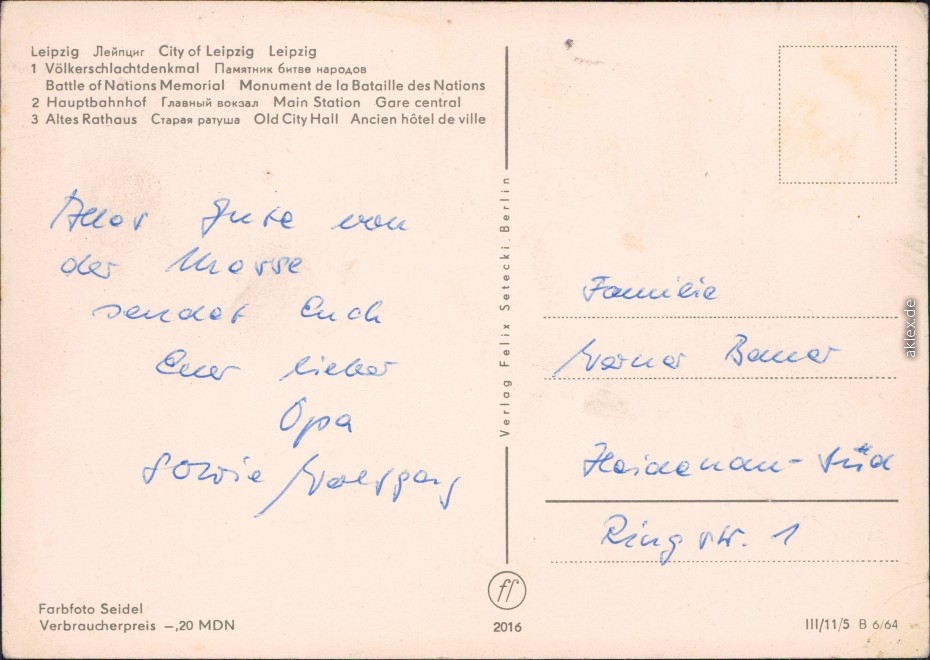 Leipzig Лейпциг City of Leipzig Leipzig
1 Völkerschlachtdenkmal Памятник битве народов
Battle of Nations Memorial Monument de la Bataille des Nations
2 Hauptbahnhof Главный вокзал Main Station Gare central
3 Altes Rathaus Старая ратуша Old City Hall Ancien hôtel de ville
Alles Gute von
der Messe
sendet Euch
Euer lieber
Opa
sowie Wolfgang
Farbfoto Seidel
Verbraucherpreis –,20 MDN
Verlag Felix Setecki, Berlin
ff
2016
Familie
Werner Bauer
Heidenau-Süd
Ringstr. 1
III/11/5 B 6/64
aklex.de